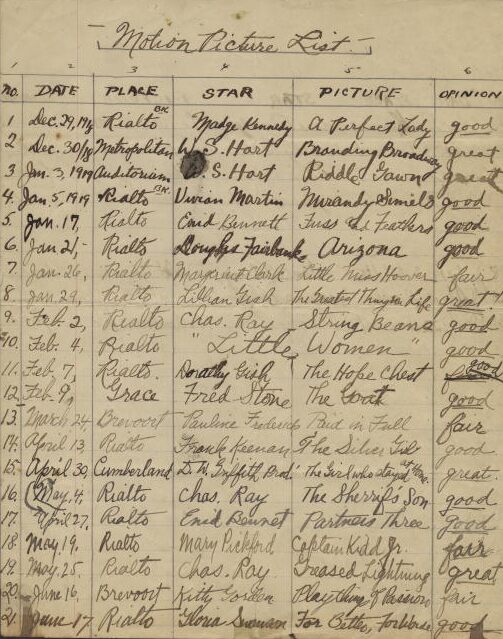 Motion Picture List
1 2 3 4 5 6
No. DATE PLACE STAR PICTURE OPINION
1 Dec. 29, 1918 Rialto BK Madge Kennedy A Perfect Lady good
2 Dec. 30/18 Metropolitan W. S. Hart Branding Broadway great
3 Jan. 3, 1919 Auditorium S. Hart Riddle Gawn great
4. Jan. 5, 1919 Rialto BK. Vivian Martin Mirandy Smiles good
5. Jan. 17, Rialto Enid Bennett Fuss and Feathers good
6. Jan 21, Rialto Douglas Fairbanks Arizona good
7. Jan. 26, Rialto Marguerite Clark Little Miss Hoover fair
8. Jan. 29, Rialto Lillian Gish The Greatest Thing in Life great!
9. Feb. 2, Rialto Chas. Ray String Beans good
10. Feb. 4, Rialto "Little Women" good
11. Feb. 7, Rialto. Dorothy Gish The Hope Chest good
12. Feb. 9, Grace Fred Stone The Goat good
13. March 24 Brevoort Pauline Frederick Paid in Full fair
14. April 13, Rialto Frank Keenan The Silver Girl good
15. April 30, Cumberland D. W. Griffith Prod. The Girl who stayed at Home great.
16. May. 4. Rialto Chas. Ray The Sheriff's Son good
17. April 27. Rialto Enid Bennet Partners Three Good
18 May 19. Rialto Mary Pickford Captain Kidd Jr. fair
19. May 25. Rialto Chas. Ray Greased Lightning great
20. June 16, Brevoort Kitty Gordon Playthings of Passion fair
21. June 17 Rialto Gloria Swanson For Better, for Worse good